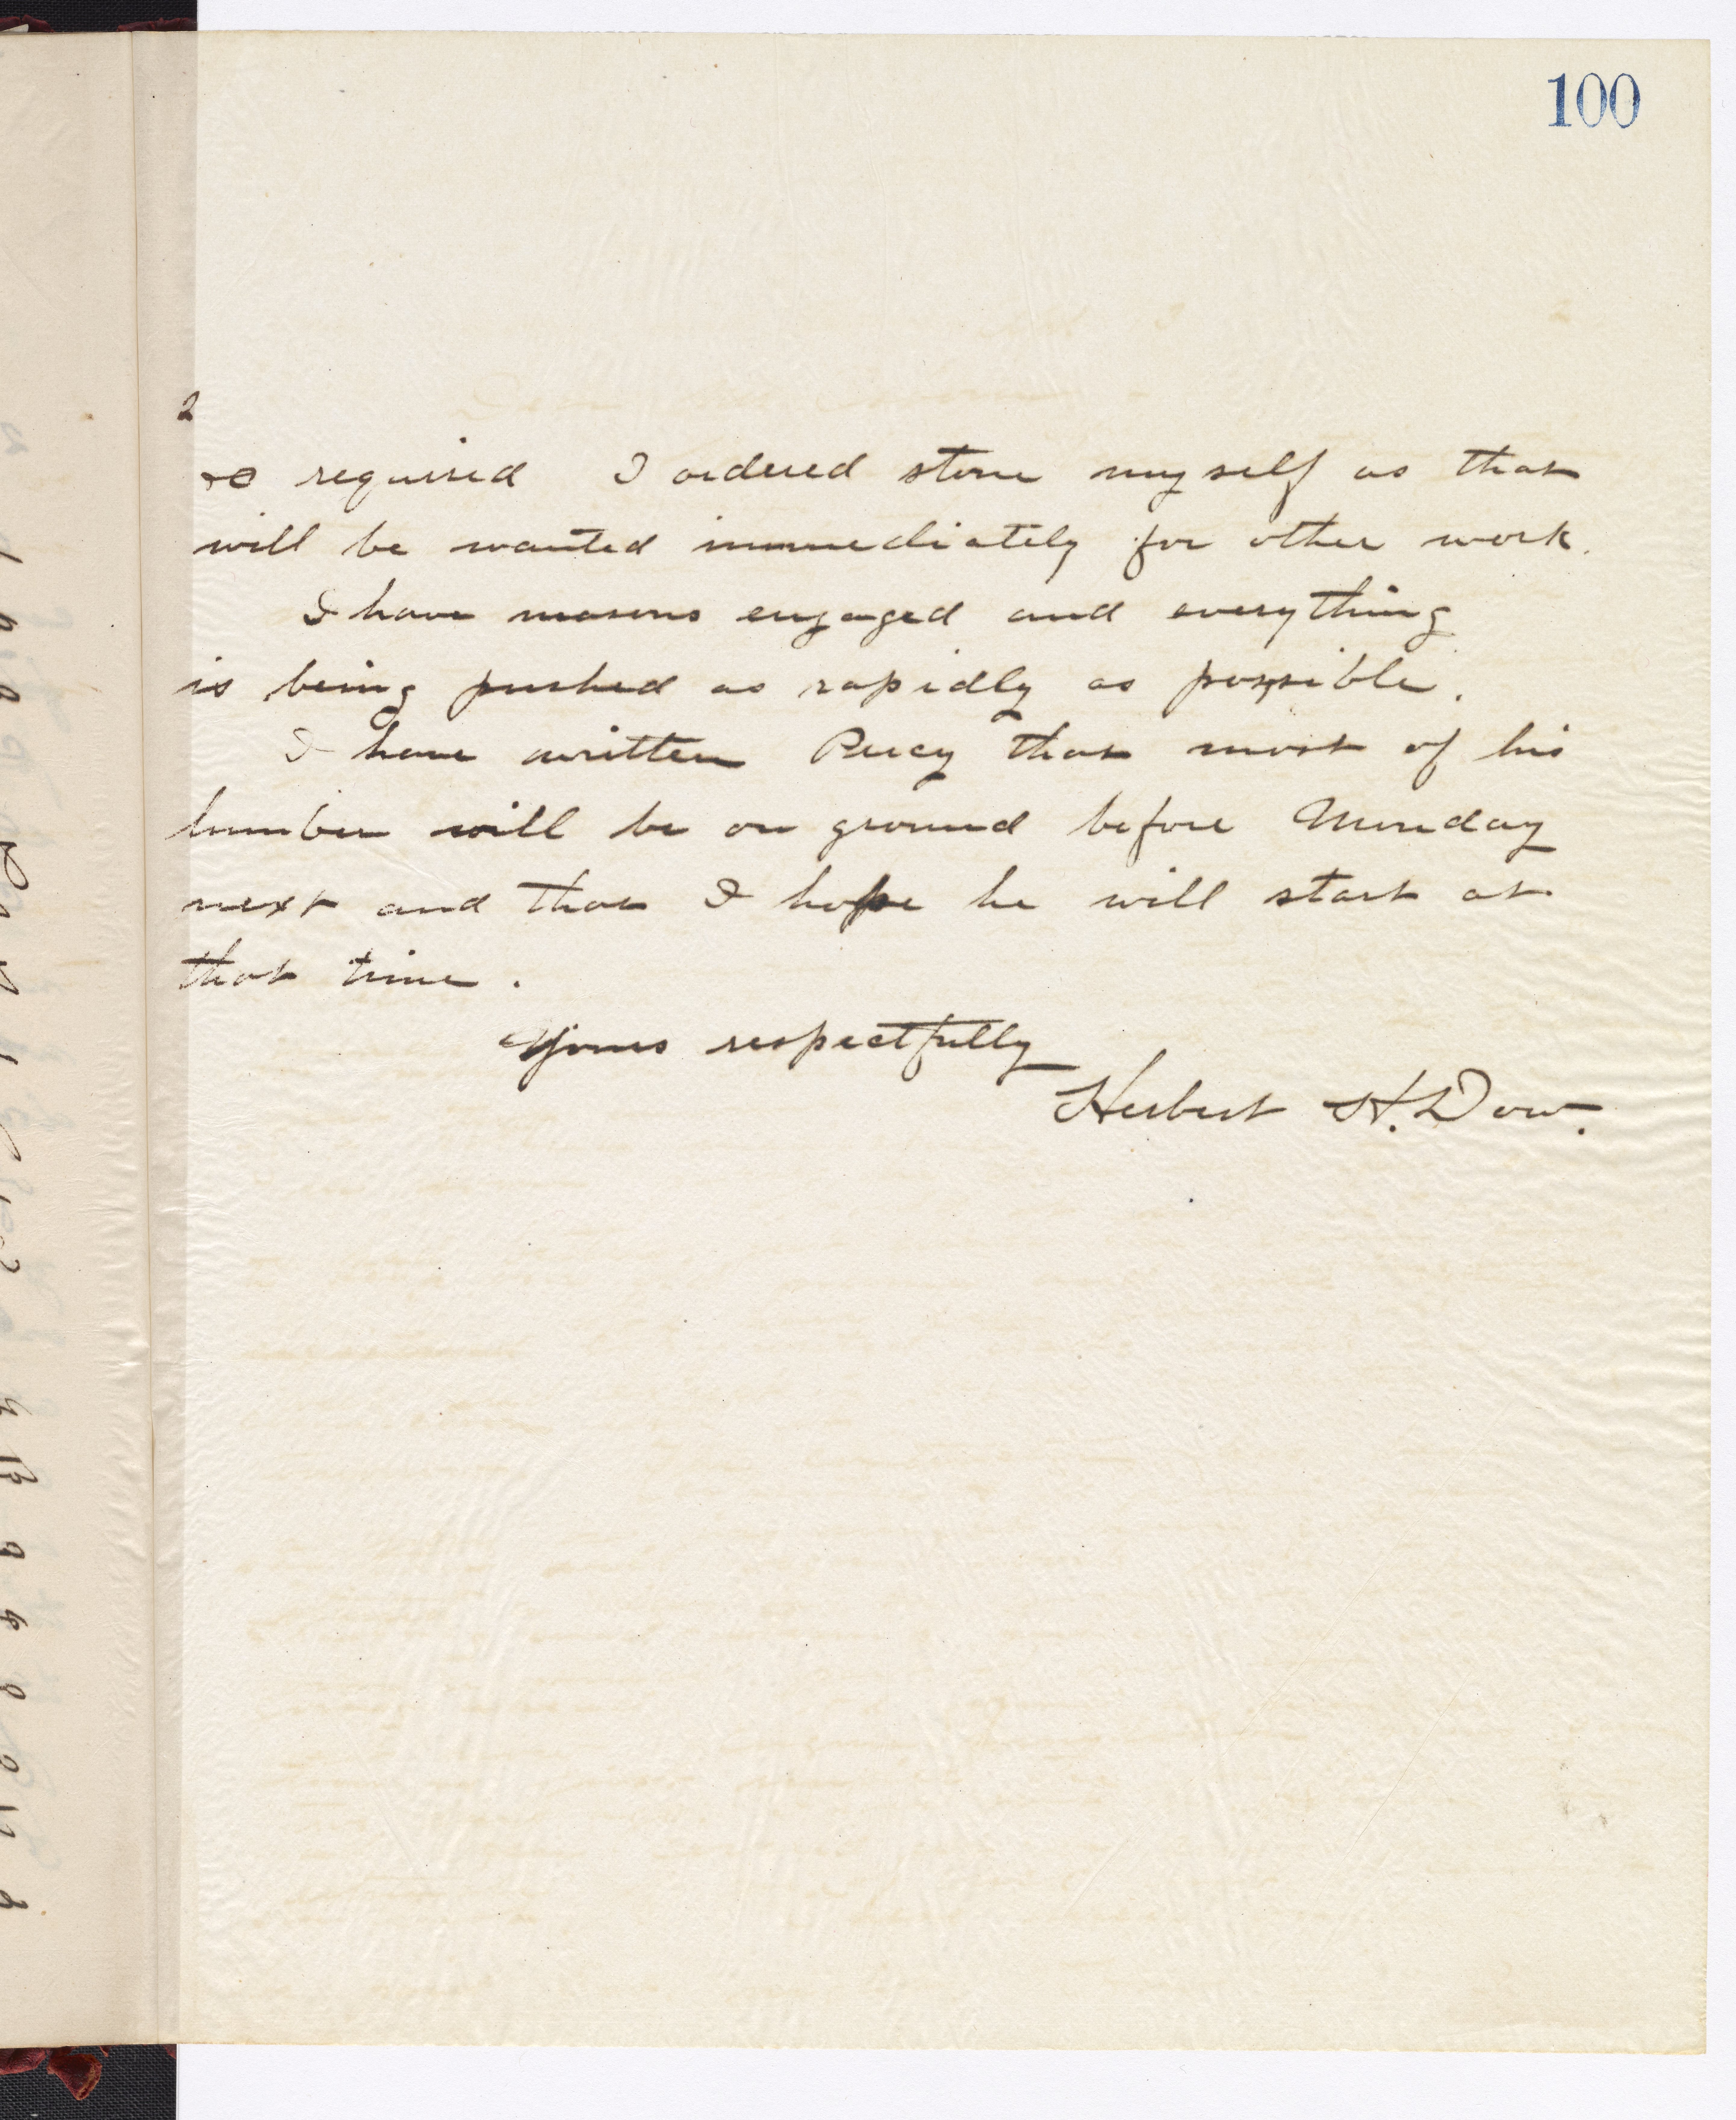 100
2
so required I ordered stone myself as that
will be wanted immediately for other work.
I have masons engaged and everything
is being pushed as rapidly as possible.
I have written Percy that most of his
lumber will be on ground before Monday
next and that I hope he will start at
that time.
Yours respectfully
Herbert H. Dow.